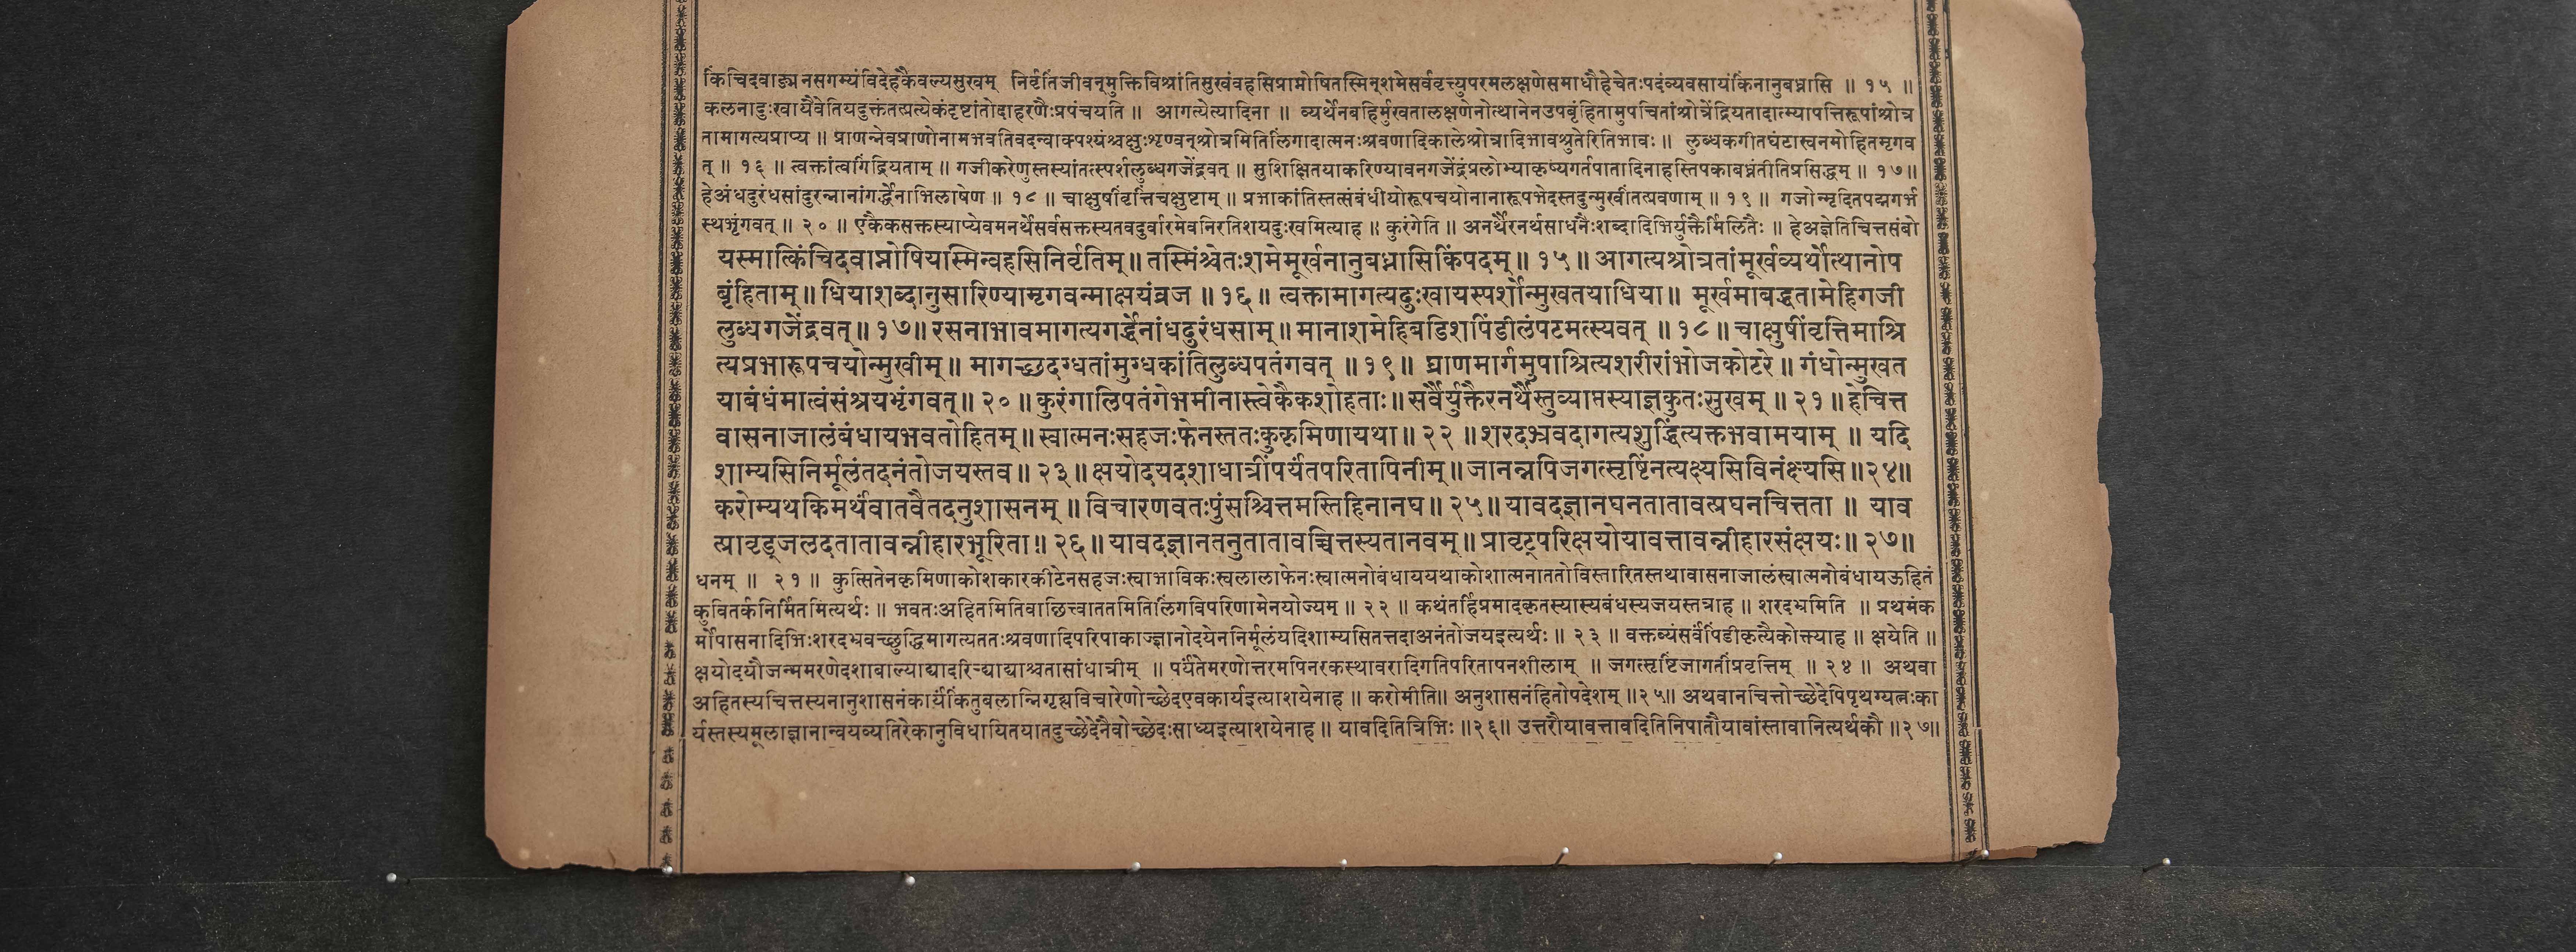 किंचिदवाङ्मनसगम्यंविदेहकैवल्यसुखम् निर्वृतिंजीवन्मुक्तिविश्रांतिसुखंवहसिप्राप्नोषितस्मिन्शमेसर्ववृत्त्युपरमलक्षणेसमाधौहेचेतःपदंव्यवसायंकिंनानुबध्नासि ॥ १५ ॥
कलनादुःखायैवेतियदुक्तंतत्प्रत्येकंदृष्टांतोदाहरणैःप्रपंचयति ॥ आगत्येत्यादिना ॥ व्यर्थेनबहिर्मुखतालक्षणेनोत्थानेनउपबृंहितामुपचितांश्रोत्रेंद्रियतादात्म्यापत्तिरूपांश्रोत्र
तामागत्यप्राप्य ॥ प्राणन्नेवप्राणोनामभवतिवदन्वाक्पश्यंश्चक्षुःशृण्वन्श्रोत्रमितिलिंगादात्मनःश्रवणादिकालेश्रोत्रादिभावश्रुतेरितिभावः ॥ लुब्धकगीतघंटास्वनमोहितमृगव
त् ॥ १६ ॥ त्वक्तांत्वगिंद्रियताम् ॥ गजीकरेणुस्तस्यांतत्स्पर्शलुब्धगजेंद्रवत् ॥ सुशिक्षितयाकरिण्यावनगजेंद्रंप्रलोभ्याकृष्यगर्तपातादिनाहस्तिपकाबध्नंतीतिप्रसिद्धम् ॥ १७ ॥
हेअंधदुरंधसांदुरन्नानांगर्द्धेनाभिलाषेण ॥ १८ ॥ चाक्षुषींवृत्तिंचक्षुष्टाम् ॥ प्रभाकांतिस्तत्संबंधीयोरूपचयोनानारूपभेदस्तदुन्मुखींतत्प्रवणाम् ॥ १९ ॥ गजोन्मृदितपद्मगर्भ
स्थभृंगवत् ॥ २० ॥ एकैकसक्तस्याप्येवमनर्थेसर्वसक्तस्यतवदुर्वारमेवनिरतिशयदुःखमित्याह ॥ कुरंगेति ॥ अनर्थैरनर्थसाधनैःशब्दादिभिर्युक्तैर्मिलितैः ॥ हेअज्ञेतिचित्तसंबो
यस्मात्किंचिदवाप्नोषियास्मिन्वहसिनिर्वृतिम् ॥ तस्मिंश्चेतःशमेमूर्खनानुबध्नासिकिंपदम् ॥ १५ ॥ आगत्यश्रोत्रतांमूर्खव्यर्थोत्थानोप
बृंहिताम् ॥ धियाशब्दानुसारिण्यामृगवन्माक्षयंव्रज ॥ १६ ॥ त्वक्तामागत्यदुःखायस्पर्शोन्मुखतयाधिया ॥ मूर्खमाबद्धतामेहिगजी
लुब्धगजेंद्रवत् ॥ १७ ॥ रसनाभावमागत्यगर्द्धेनांधदुरंधसाम् ॥ मानाशमेहिबडिशपिंडीलंपटमत्स्यवत् ॥ १८ ॥ चाक्षुषींवृत्तिमाश्रि
त्यप्रभारूपचयोन्मुखीम् ॥ मागच्छदग्धतांमुग्धकांतिलुब्धपतंगवत् ॥ १९ ॥ घ्राणमार्गमुपाश्रित्यशरीरांभोजकोटरे ॥ गंधोन्मुखत
याबंधंमात्वंसंश्रयभृंगवत् ॥ २० ॥ कुरंगालिपतंगेभमीनास्त्वेकैकशोहताः ॥ सर्वैर्युक्तैरनर्थैस्तुव्याप्तस्याज्ञकुतःसुखम् ॥ २१ ॥ हेचित्त
वासनाजालंबंधायभवतोहितम् ॥ स्वात्मनःसहजःफेनस्ततःकुकृमिणायथा ॥ २२ ॥ शरदभ्रवदागत्यशुद्धिंत्यक्तभवामयाम् ॥ यदि
शाम्यसिनिर्मूलंतदनंतोजयस्तव ॥ २३ ॥ क्षयोदयदशाधात्रींपर्यंतपरितापिनीम् ॥ जानन्नपिजगत्सृष्टिंनत्यक्ष्यसिविनंक्ष्यसि ॥ २४ ॥
करोम्यथकिमर्थंवातवैतदनुशासनम् ॥ विचारणवतःपुंसश्चित्तमस्तिहिनानघ ॥ २५ ॥ यावदज्ञानघनतातावत्प्रघनचित्तता ॥ याव
त्प्रावृड्जलदतातावन्नीहारभूरिता ॥ २६ ॥ यावदज्ञानतनुतातावच्चित्तस्यतानवम् ॥ प्रावृट्परिक्षयोयावत्तावन्नीहारसंक्षयः ॥ २७ ॥
धनम् ॥ २१ ॥ कुत्सितेनकृमिणाकोशकारकीटेनसहजःस्वाभाविकःस्वलालाफेनःस्वात्मनोबंधाययथाकोशात्मनाततोविस्तारितस्तथावासनाजालंस्वात्मनोबंधायऊहितं
कुवितर्कनिर्मितमित्यर्थः ॥ भवतःअहितमितिवाछित्त्वाततमितिलिंगविपरिणामेनयोज्यम् ॥ २२ ॥ कथंतर्हिप्रमादकृतस्यास्यबंधस्यजयस्तत्राह ॥ शरदभ्रमिति ॥ प्रथमंक
र्मोपासनादिभिःशरदभ्रवच्छुद्धिमागत्यततःश्रवणादिपरिपाकाज्ज्ञानोदयेननिर्मूलंयदिशाम्यसितत्तदाअनंतोजयइत्यर्थः ॥ २३ ॥ वक्तव्यंसर्वंपिंडीकृत्यैकोक्त्याह ॥ क्षयेति ॥
क्षयोदयौजन्ममरणेदशाबाल्याद्यादरिद्र्याद्याश्चतासांधात्रीम् ॥ पर्यंतेमरणोत्तरमपिनरकस्थावरादिगतिपरितापनशीलाम् ॥ जगत्सृष्टिंजागतींप्रवृत्तिम् ॥ २४ ॥ अथवा
अहितस्यचित्तस्यनानुशासनंकार्यंकिंतुबलान्निगृह्यविचारेणोच्छेदएवकार्यइत्याशयेनाह ॥ करोमीति ॥ अनुशासनंहितोपदेशम् ॥ २५ ॥ अथवानचित्तोच्छेदेपिपृथग्यत्नःका
र्यस्तस्यमूलाज्ञानान्वयव्यतिरेकानुविधायितयातदुच्छेदेनैवोच्छेदःसाध्यइत्याशयेनाह ॥ यावदितित्रिभिः ॥ २६ ॥ उत्तरौयावत्तावदितिनिपातौयावांस्तावानित्यर्थकौ ॥ २७ ॥